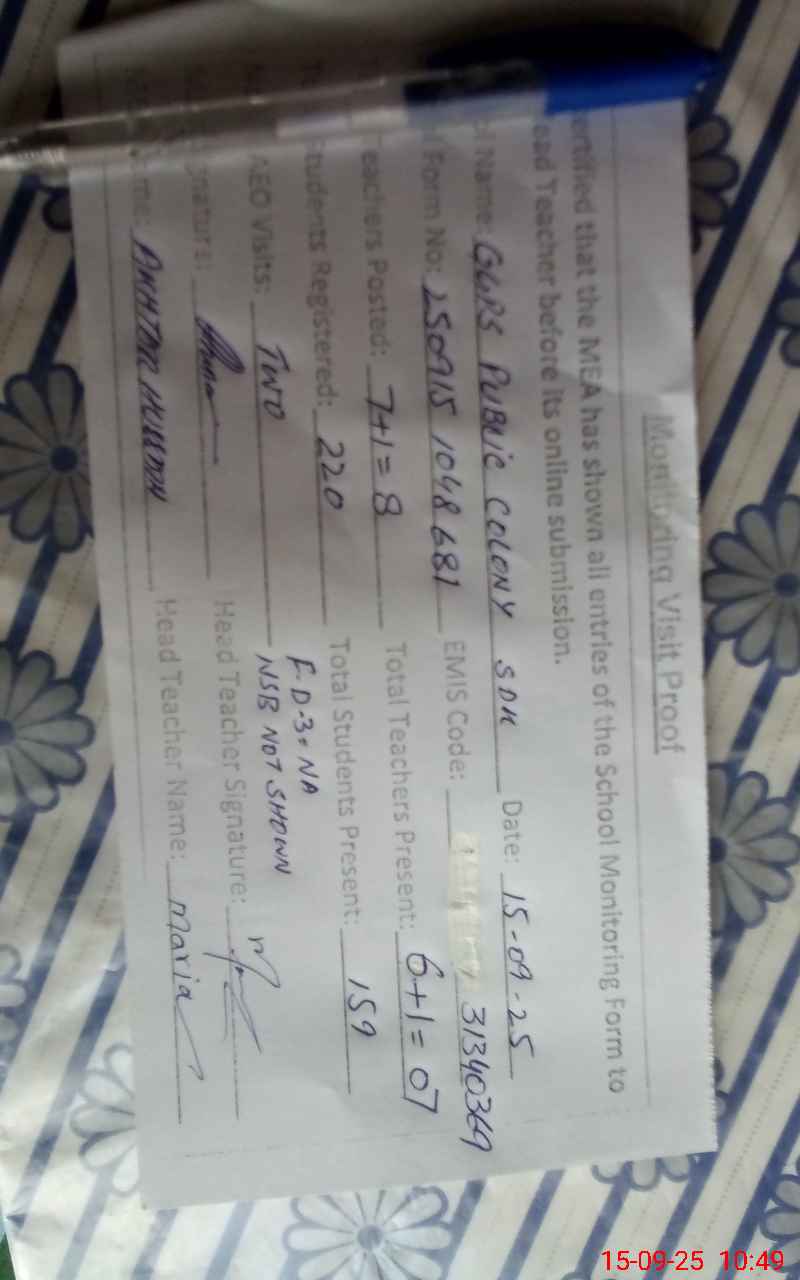 Monitoring Visit Proof
ertified that the MEA has shown all entries of the School Monitoring Form to
ead Teacher before its online submission.
Name: GGPS PUBLIC COLONY SDK Date: 15-09-25
Form No: 250915 1048 681 EMIS Code: 31340369
eachers Posted: 7+1=8 Total Teachers Present: 6+1=07
Students Registered: 220 Total Students Present: 159
AEO Visits: TWO
F-D-3. NA
NSB NOT SHOWN
nature: Head Teacher Signature:
me: AKHTAR HUSSAIN Head Teacher Name: Maria
15-09-25 10:49